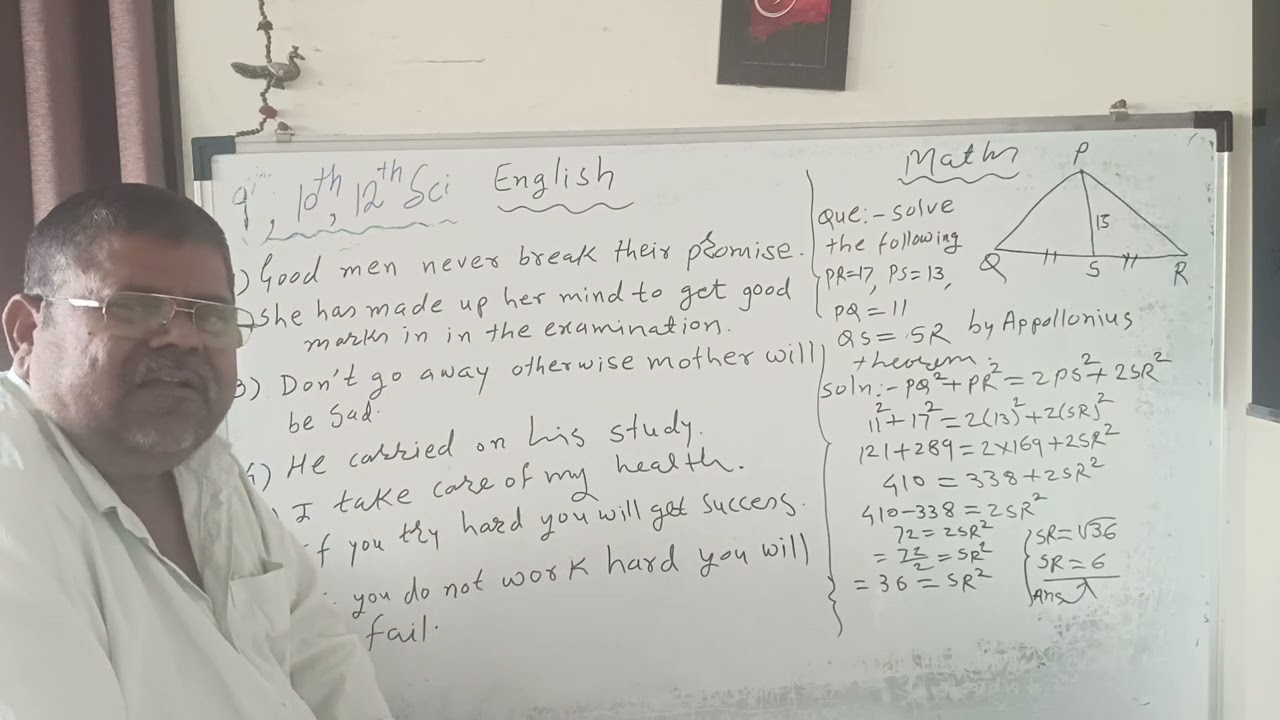 9th, 10th, 12th Sci
English
1) Good men never break their promise.
She has made up her mind to get good
marks in in the examination.
3) Don't go away otherwise mother will
be sad.
4) He carried on his study.
) I take care of my health.
If you try hard you will get success.
you do not work hard you will
fail.
Maths
P
13
Q
S
R
Que:- solve
the following
PR=17, PS=13,
PQ=11
QS = SR by Appollonius
theorem.
Soln:- PQ²+PR²=2PS²+2SR²
11²+17²=2(13)²+2(SR)²
121+289=2×169+2SR²
410=338+2SR²
410-338=2SR²
72=2SR²
=72/2=SR²
=36=SR²
SR=√36
SR=6
Ans